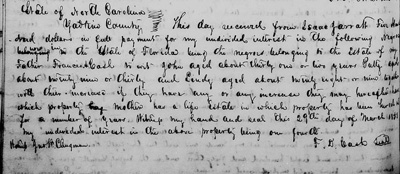 State of North Carolina
Yadkin County This day received from Isaac Jarratt Five hun
dred dollars in full payment for my undivided interest in the following negroes
belonging to the State of Florida being the negroes belonging to the Estate of my
Father Francis Cash to wit John aged about thirty one or two years Patty aged
about twenty nine or thirty and Lindy aged about twenty eight or nine years
with their increase if they have any or any increase they may have after
which property my mother has a life Estate in which property has been
for a number of years. Witness my hand and seal this 29th day of March 185
my undivided interest in the above property being one fourth
Witness H. Clingman. F. D. Cash seal